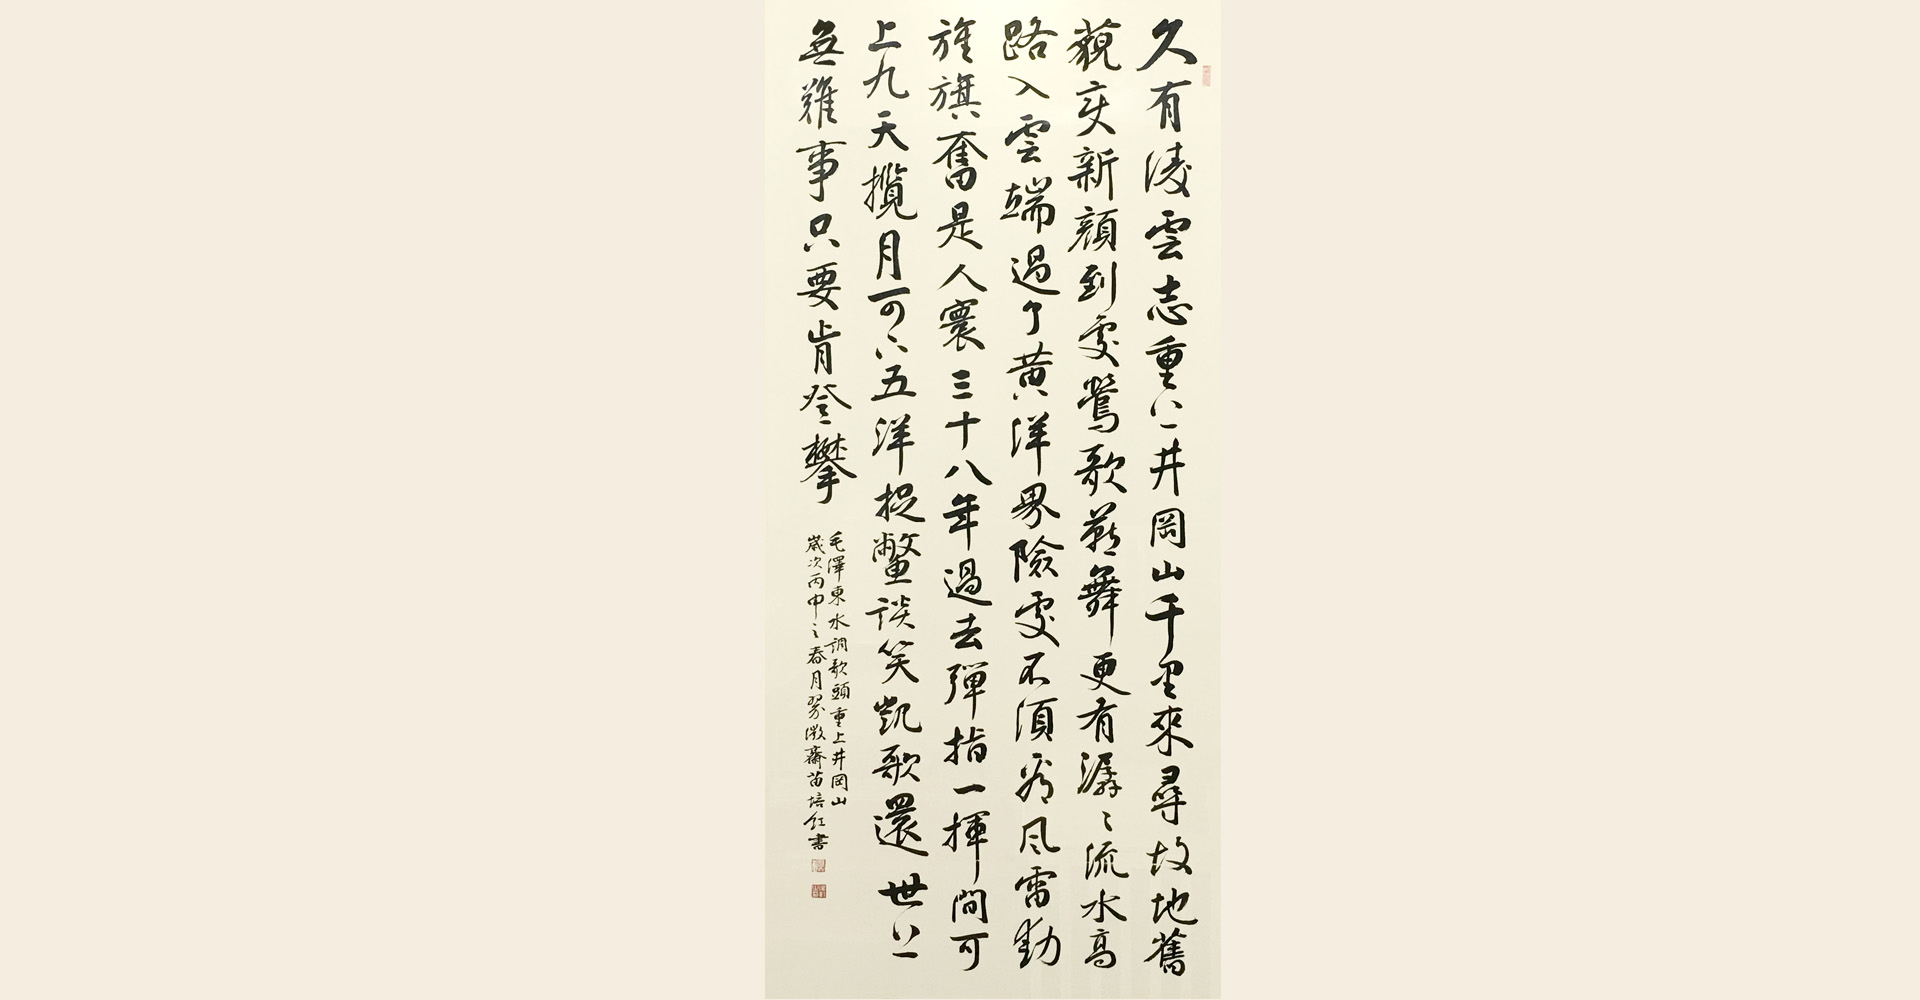 久有凌雲志重上井岡山千里來尋故地舊
藐变新顏到處鶯歌燕舞更有潺〻流水高
路入雲端過了黄洋界險處不須看风雷動
旌旗奮是人寰三十八年過去彈指一揮間可
上九天攬月可下五洋捉鱉談笑凱歌還世上
無難事只要肯登攀
毛澤東水調歌頭重上井岡山
歲次丙申之春月翠微齋苗培红書